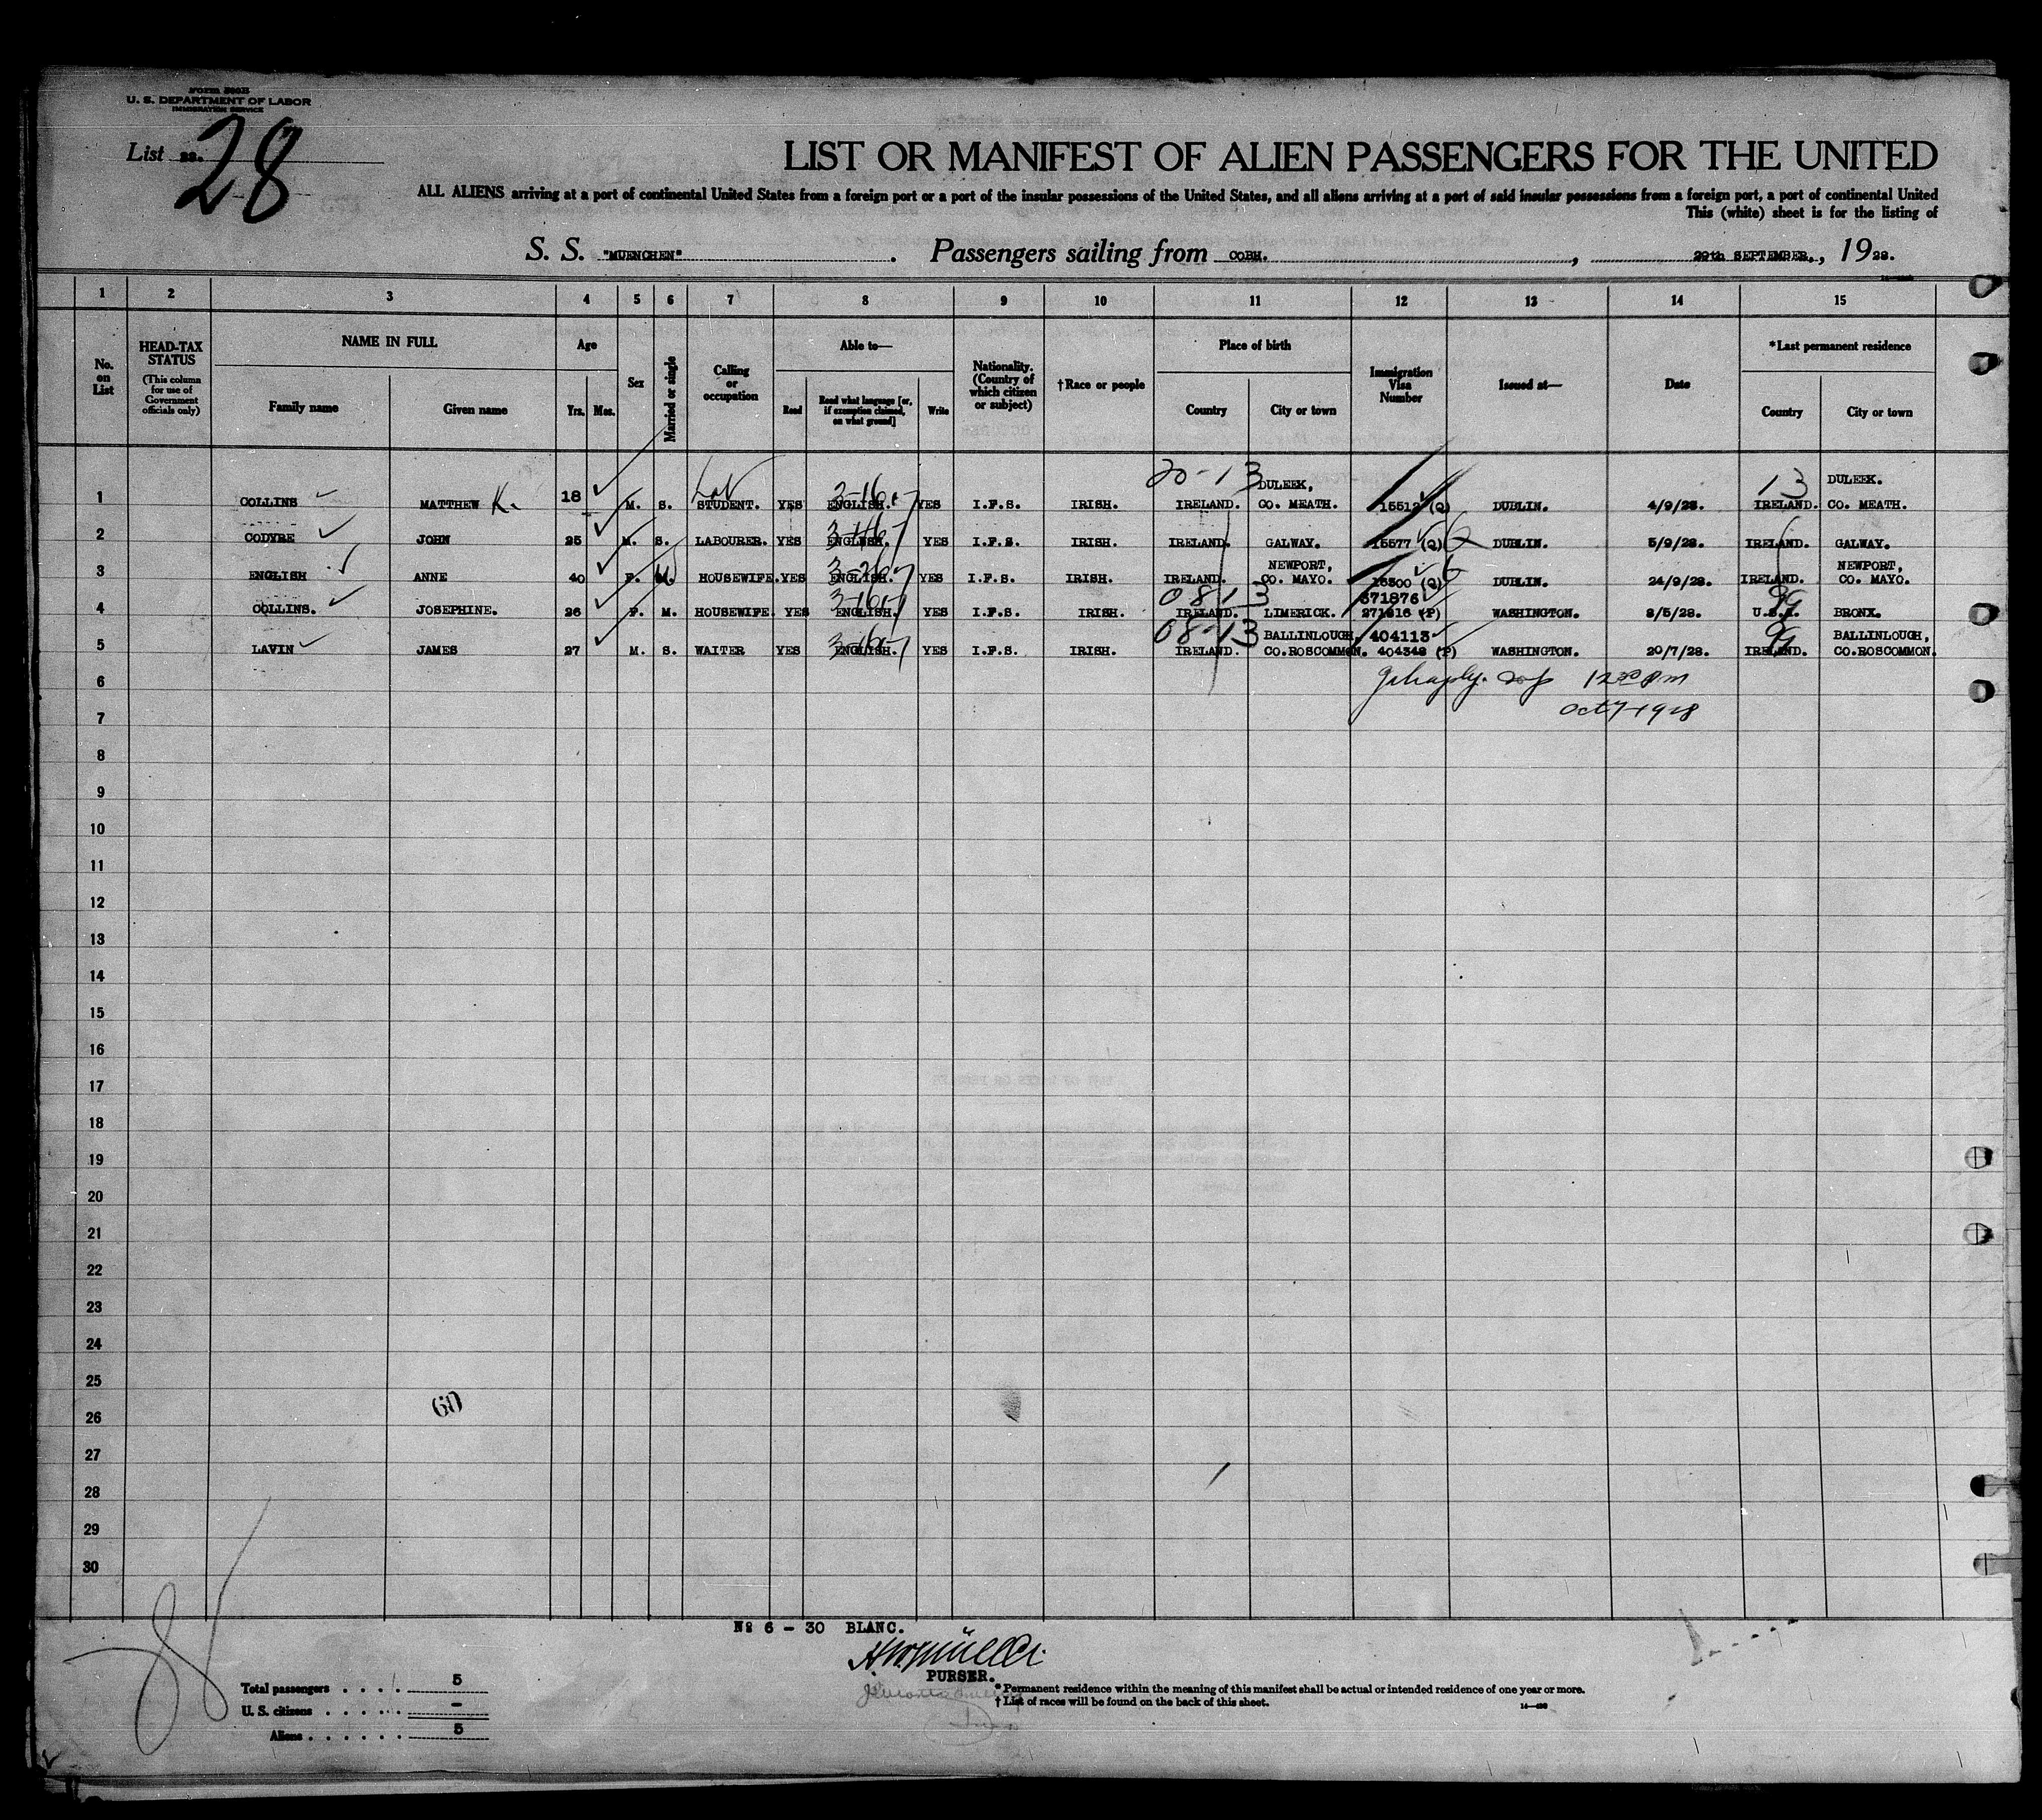 Form 500B
U. S. DEPARTMENT OF LABOR
IMMIGRATION SERVICE
List 28.
28
LIST OR MANIFEST OF ALIEN PASSENGERS FOR THE UNITED
ALL ALIENS arriving at a port of continental United States from a foreign port or a port of the insular possessions of the United States, and all aliens arriving at a port of said insular possessions from a foreign port, a port of continental United
This (white) sheet is for the listing of
S. S. "MUENCHEN" . Passengers sailing from COBH. , 29th SEPTEMBER. , 1928.
1 2 3 4 5 6 7 8 9 10 11 12 13 14 15
No. on List
HEAD-TAX STATUS
(This column for use of Government officials only)
NAME IN FULL
Family name Given name
Age
Yrs. Mos.
Sex
Married or single
Calling or occupation
Able to—
Read Read what language [or, if exemption claimed, on what ground] Write
Nationality. (Country of which citizen or subject)
†Race or people
Place of birth
Country City or town
Immigration Visa Number
Issued at—
Date
*Last permanent residence
Country City or town
20-13 DULEEK, 13 DULEEK.
1 COLLINS MATTHEW K. 18 M. S. STUDENT. YES ENGLISH. YES I.F.S. IRISH. IRELAND. CO. MEATH. (Q) DUBLIN. 4/9/28. IRELAND. CO. MEATH.
2 CODYRE JOHN 25 M. S. LABOURER. YES ENGLISH. YES I.F.S. IRISH. IRELAND. GALWAY. 15577 (Q) DUBLIN. 5/9/28. IRELAND. GALWAY.
NEWPORT, NEWPORT,
3 ENGLISH ANNE 40 F. M. HOUSEWIFE. YES ENGLISH. YES I.F.S. IRISH. IRELAND. CO. MAYO. 16300 (Q) DUBLIN. 24/9/28. IRELAND. CO. MAYO.
0813 371876
4 COLLINS. JOSEPHINE. 26 F. M. HOUSEWIFE. YES ENGLISH. YES I.F.S. IRISH. IRELAND. LIMERICK. 271816 (P) WASHINGTON. 8/5/28. U.S.A. BRONX.
08-13 BALLINLOUGH, 404113 BALLINLOUGH,
5 LAVIN JAMES 27 M. S. WAITER YES ENGLISH. YES I.F.S. IRISH. IRELAND. CO.ROSCOMMON. 404348 (P) WASHINGTON. 20/7/28. IRELAND. CO.ROSCOMMON.
6
Oct 7-1928
7
8
9
10
11
12
13
14
15
16
17
18
19
20
21
22
23
24
25
60
26
27
28
29
30
No 6 - 30 BLANC.
PURSER.
Total passengers . . . . 5
U. S. citizens . . . . . –
Aliens . . . . . . 5
* Permanent residence within the meaning of this manifest shall be actual or intended residence of one year or more.
† List of races will be found on the back of this sheet.